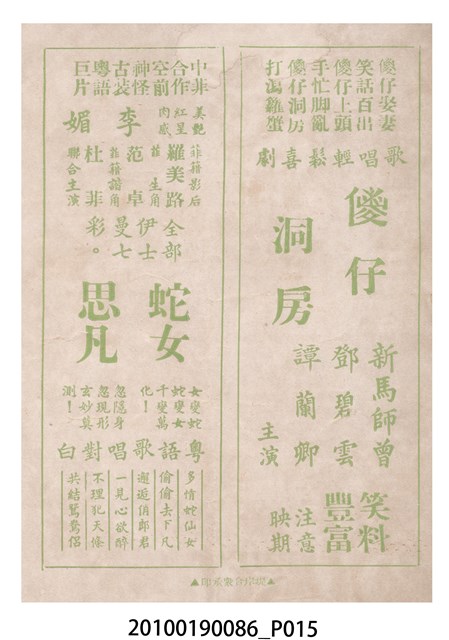 傻仔娶妻
笑話百出
傻仔上頭
手忙脚亂
傻仔洞房
打瀉籮蟹
歌唱輕鬆喜劇
傻仔
洞房
新馬師曾
鄧碧雲
譚蘭卿
主演
笑料
豐富
注意
映期
中菲
合作
空前
神怪
古裝
粵語
巨片
美艷
紅星
肉感
李媚
菲籍影后
羅美路
首生角
范卓
菲籍諧角
杜菲
聯合主演
全部
伊士
曼七
彩。
蛇女
思凡
女變蛇
蛇變女
千變萬
化！
忽隱身
忽現形
玄妙莫
測！
粵語歌唱對白
多情蛇仙女
偷偷去下凡
邂逅俏郎君
一見心欲醉
不理犯天條
共結鴛鴦侶